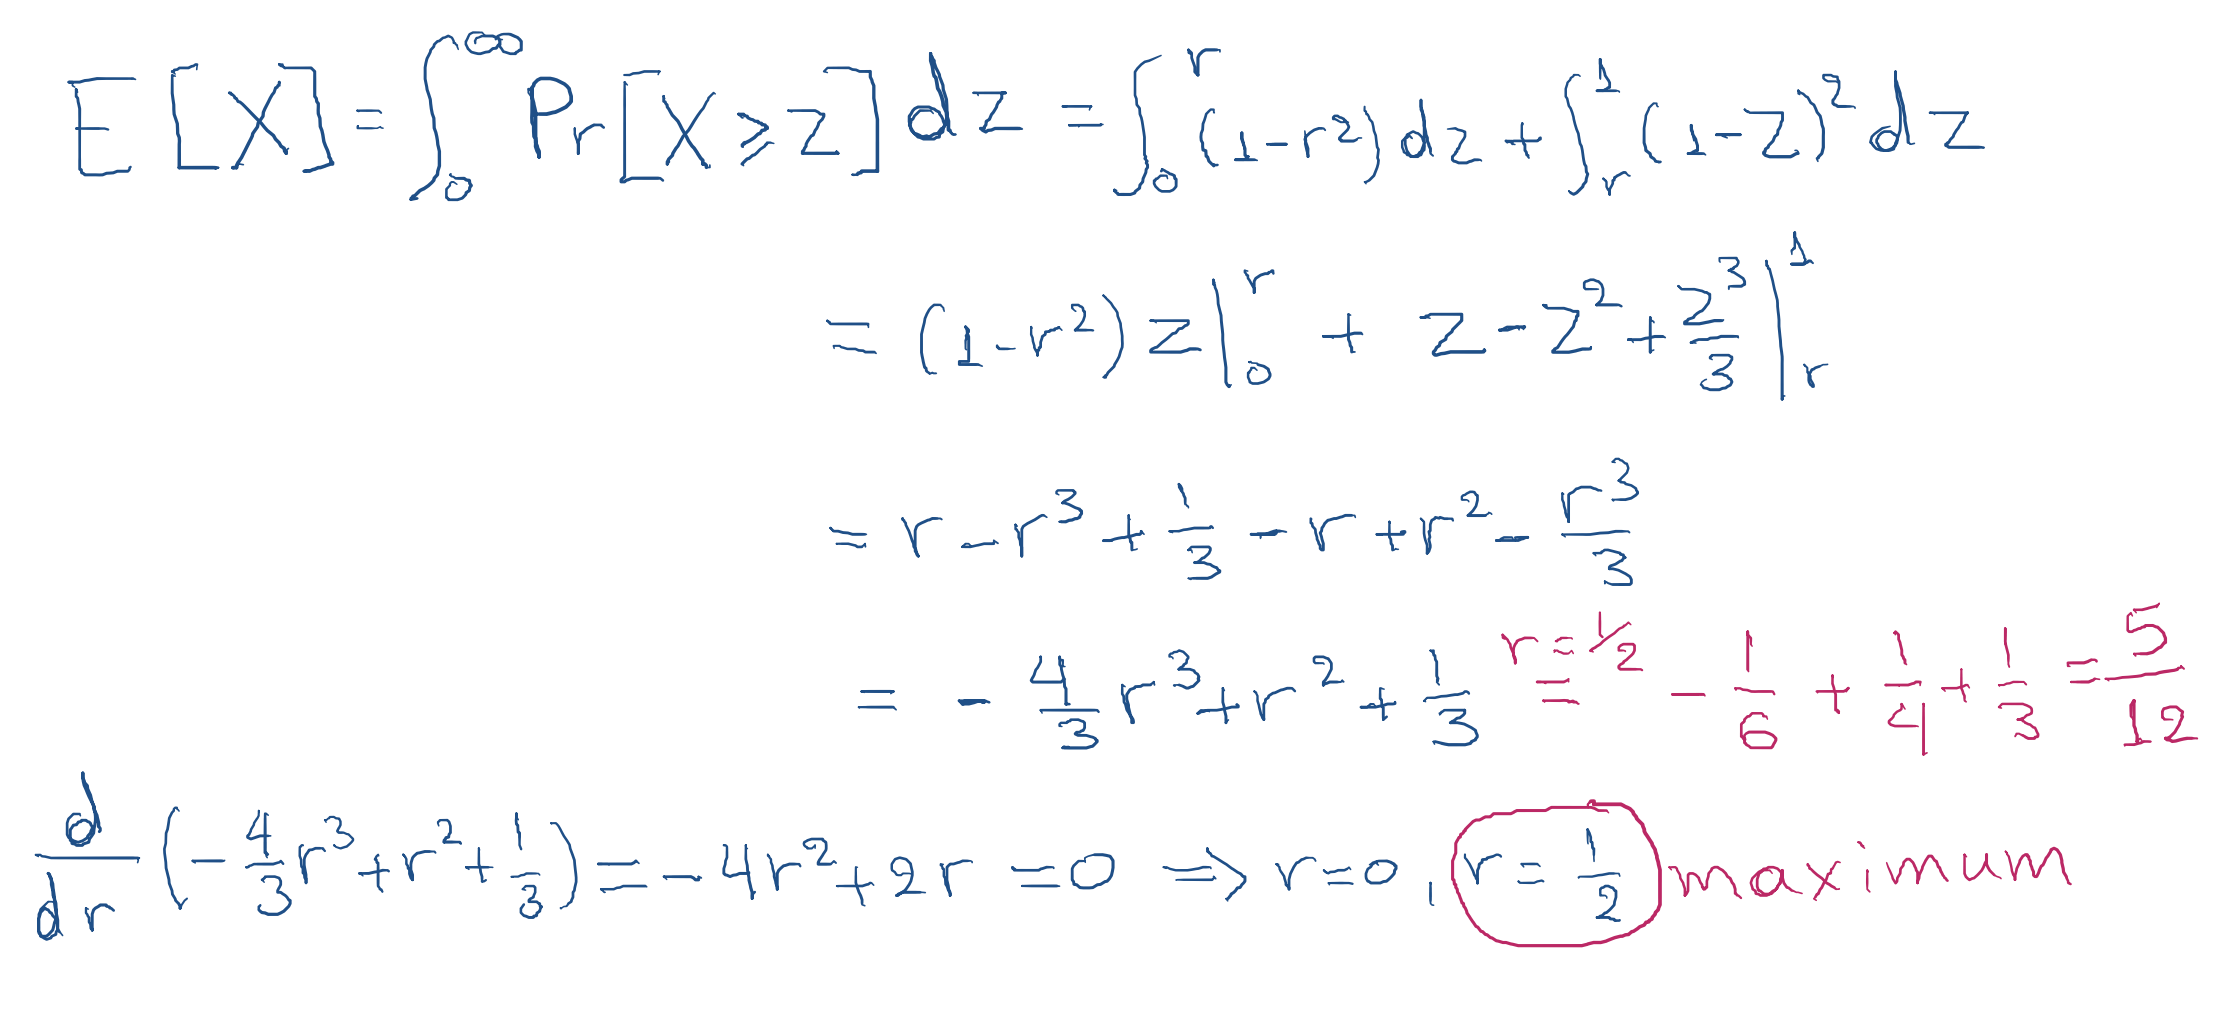 E[X] = ∫₀^∞ Pr[X ≥ z] dz = ∫₀^r (1-r²) dz + ∫_r^1 (1-z)² dz
= (1-r²) z |₀^r + z - z² + z³/3 |_r^1
= r - r³ + 1/3 - r + r² - r³/3
= - 4/3 r³ + r² + 1/3 =^{r=1/2} - 1/6 + 1/4 + 1/3 = 5/12
d/dr (- 4/3 r³ + r² + 1/3) = - 4r² + 2r = 0 ⇒ r=0, r = 1/2 maximum